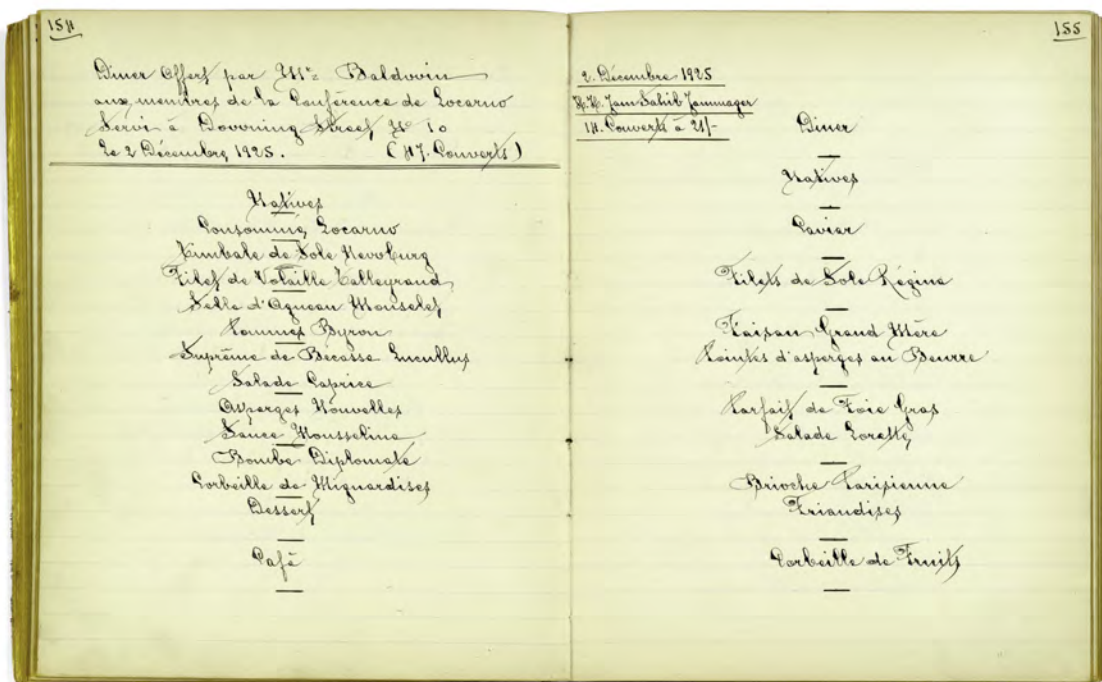 154
Diner Offert par Mr. Baldwin
aux membres de la Conférence de Locarno
Servi à Downing Street No 10
Le 2 Décembre 1925. (47. Couverts)
Natives
Consommé Locarno
Timbale de Sole Newburg
Filet de Volaille Talleyrand
Selle d'Agneau Mouselet
Pommes Byron
Suprême de Becasse Lucullus
Salade Caprice
Asperges Nouvelles
Sauce Mousseline
Bombe Diplomate
Corbeille de Mignardises
Dessert
Café
155
2. Décembre 1925
H.H. Jam Sahib Jamnager
14. Couverts à 21/-
Diner
Natives
Caviar
Filets de Sole Régina
Faisan Grand Mère
Pointes d'asperges au Beurre
Parfait de Foie Gras
Salade Lorette
Brioche Parisienne
Friandises
Corbeille de Fruits